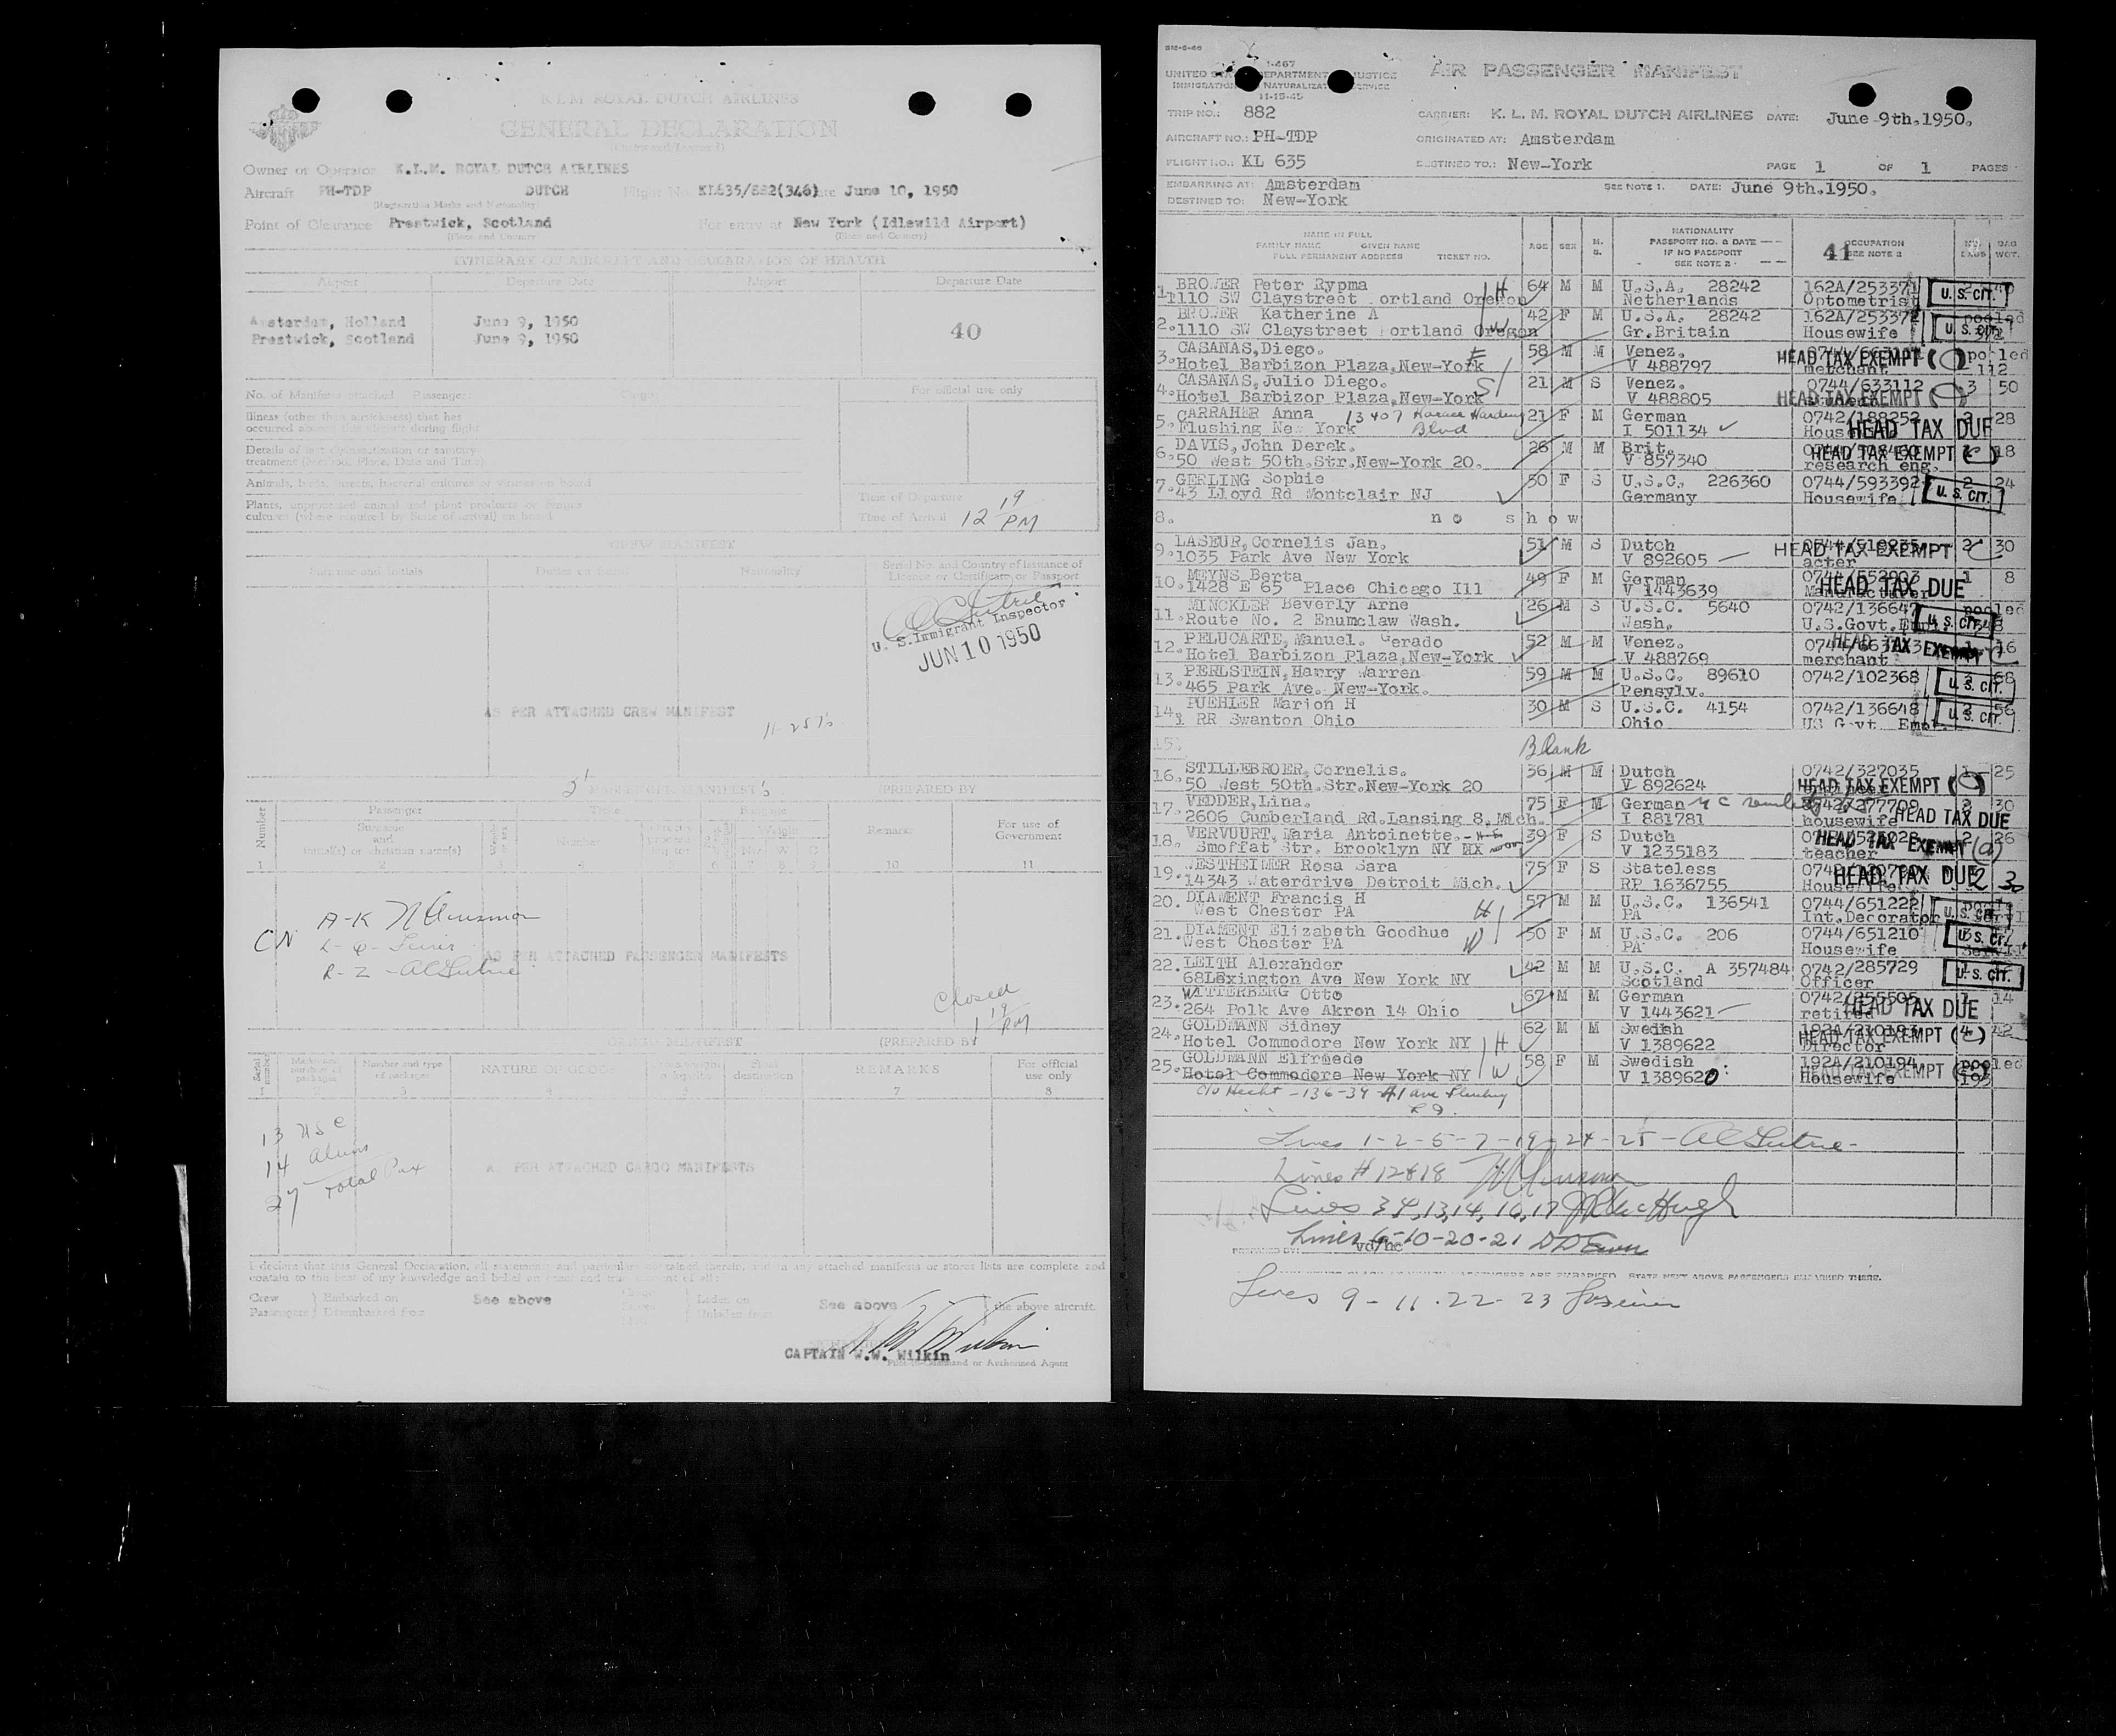 K.L.M. ROYAL DUTCH AIRLINES
GENERAL DECLARATION
(Outward/Inward)
Owner or Operator K.L.M. ROYAL DUTCH AIRLINES
Aircraft PH-TDP DUTCH Flight No. KL635/882(346) Date June 10, 1950
(Registration Marks and Nationality)
Point of Clearance Prestwick, Scotland For entry at New York (Idlewild Airport)
(Place and Country) (Place and Country)
ITINERARY OF AIRCRAFT AND DECLARATION OF HEALTH
Airport Departure Date Airport Departure Date
Amsterdam, Holland June 9, 1950
Prestwick, Scotland June 9, 1950
40
No. of Manifests attached Passenger: Cargo:
For official use only
Illness (other than airsickness) that has
occurred aboard this aircraft during flight
Details of last disinsectization or sanitary
treatment (Method, Place, Date and Time)
Animals, birds, insects, bacterial cultures or viruses on board
Plants, unprocessed animal and plant products or fungus
cultures (where required by State of arrival) on board
Time of Departure
Time of Arrival 12 19 PM
CREW MANIFEST
Surname and Initials Duties on board Nationality Serial No. and Country of issuance of
Licence or Certificate, or Passport
U. S. Immigrant Inspector
JUN 10 1950
AS PER ATTACHED CREW MANIFEST
2 PASSENGER MANIFEST's (PREPARED BY
Number Passenger Baggage
Surname
and
initial(s) or christian name(s)
Number Weight Remarks For use of
Government
1 2 3 4 5 6 7 8 9 10 11
A-K
L-Q-
R-Z-
AS PER ATTACHED PASSENGER MANIFESTS
Closed
1 19 PM
CARGO MANIFEST (PREPARED BY
Serial number Marks and number of packages Number and type of packages NATURE OF GOODS destination REMARKS For official use only
1 2 3 4 7 8
13 USC
14 Aliens
27 Total Pax
AS PER ATTACHED CARGO MANIFESTS
I declare that this General Declaration, all statements and particulars contained therein, and in any attached manifests or stores lists are complete and
contain to the best of my knowledge and belief an exact and true account of all:
Crew Embarked on See above Laden on See above the above aircraft.
Passengers Disembarked from Unladen from
CAPTAIN W.W. Wilkin
Pilot-in-Command or Authorized Agent
I-467
UNITED STATES DEPARTMENT OF JUSTICE AIR PASSENGER MANIFEST
IMMIGRATION NATURALIZATION SERVICE
11-15-45
TRIP NO.: 882 CARRIER: K. L. M. ROYAL DUTCH AIRLINES DATE: June 9th,1950.
AIRCRAFT NO.: PH-TDP ORIGINATED AT: Amsterdam
FLIGHT NO.: KL 635 DESTINED TO: New-York PAGE 1 OF 1 PAGES
EMBARKING AT: Amsterdam SEE NOTE 1. DATE: June 9th,1950.
DESTINED TO: New-York
NAME IN FULL
FAMILY NAME GIVEN NAME
FULL PERMANENT ADDRESS TICKET NO.
AGE SEX M. S. NATIONALITY
PASSPORT NO. & DATE
IF NO PASSPORT
SEE NOTE 2
41 OCCUPATION
SEE NOTE 2
BAG WGT.
1. BROWER Peter Rypma H 64 M M U.S.A. 28242 162A/253371 U. S. CIT.
1110 SW Claystreet ortland Oregon Netherlands Optometrist
2. BROWER Katherine A W 42 F M U.S.A. 28242 162A/253372 pooled
1110 SW Claystreet ortland Oregon Gr.Britain Housewife U. S. CIT.
3. CASANAS,Diego. F 58 M M Venez. HEAD TAX EXEMPT pooled
Hotel Barbizon Plaza,New-York V 488797 merchant 112
4. CASANAS,Julio Diego. S 21 M S Venez. 0744/633112 3 50
Hotel Barbizor Plaza,New-York V 488805 HEAD TAX EXEMPT
5. CARRAHER Anna 13407 Horace Harding Blvd 21 F M German 0742/188252 28
Flushing New York I 501134 HEAD TAX DUE
6. DAVIS,John Derek. 26 M M Brit. HEAD TAX EXEMPT 18
50 West 50th.Str.New-York 20. V 857340 research eng.
7. GERLING Sophie 50 F S U.S.C. 226360 0744/593392 2 24
43 Lloyd Rd Montclair NJ Germany Housewife U. S. CIT.
8. n o s h o w
9. LASEUR,Cornelis Jan. 51 M S Dutch HEAD TAX EXEMPT 2 30
1035 Park Ave New York V 892605 acter
10. MEYNS Berta 49 F M German 0744/552903 1 8
1428 E 65 Place Chicago Ill V 1443639 Manufacturer HEAD TAX DUE
11. MINCKLER Beverly Arne 26 M S U.S.C. 5640 0742/136647 pooled
Route No. 2 Enumclaw Wash. Wash. U.S.Govt.Empl. U. S. CIT.
12. PELUCARTE,Manuel. Gerado 52 M M Venez. HEAD TAX EXEMPT 16
Hotel Barbizon Plaza,New-York V 488769 merchant
13. PERLSTEIN,Harry Warren 59 M M U.S.C. 89610 0742/102368 68
465 Park Ave. New-York. Pensylv. U. S. CIT.
14. PUEHLER Marion H 30 M S U.S.C. 4154 0742/136648 2 56
RR Swanton Ohio Ohio US Govt. Empl. U. S. CIT.
15. Blank
16. STILLEBROER,Cornelis. 36 M M Dutch 0742/327035 1 25
50 West 50th.Str.New-York 20 V 892624 HEAD TAX EXEMPT
17. VEDDER,Lina. 75 F M German 0742/277709 2 30
2606 Cumberland Rd.Lansing 8,Mich. I 881781 housewife HEAD TAX DUE
18. VERVUURT,Maria Antoinette. 39 F S Dutch HEAD TAX EXEMPT (a) 2 26
Smoffat Str. Brooklyn NY V 1235183 teacher
19. WESTHEIMER Rosa Sara 75 F S Stateless HEAD TAX DUE 2 30
14343 Waterdrive Detroit Mich. RP 1636755 Housewife
20. DIAMENT Francis H H 57 M M U.S.C. 136541 0744/651222
West Chester PA PA Int.Decorator U. S. CIT.
21. DIAMENT Elizabeth Goodhue W 50 F M U.S.C. 206 0744/651210 U.S. CIT.
West Chester PA PA Housewife
22. LEITH Alexander 42 M M U.S.C. A 357484 0742/285729
68Lexington Ave New York NY Scotland Officer U. S. CIT.
23. WITTERBERG Otto 67 M M German 0742/255505 1 14
264 Polk Ave Akron 14 Ohio V 1443621 retired HEAD TAX DUE
24. GOLDMANN Sidney 62 M M Swedish 192A/210193 4 42
Hotel Commodore New York NY H V 1389622 Director HEAD TAX EXEMPT
25. GOLDMANN Elfriede 58 F M Swedish 192A/210194 pooled
Hotel Commodore New York NY W V 1389620 Housewife HEAD TAX EXEMPT
c/o Hecht - 136-39 41 ave Flushing
Lines 1-2-5-7-19-24-25-
Lines # 12 & 18
Lines 3 4, 13, 14, 16, 17 McHugh
Lines 6-10-20-21
PREPARED BY: vd/hc
STATE NEXT ABOVE PASSENGERS EMBARKED THERE.
Lines 9 - 11 - 22 - 23